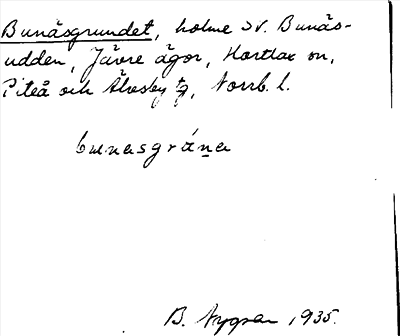 Bunäsgrundet, holme SV. Bunäs-
udden, Jävre ägor, Hortlax sn,
Piteå och Älvsby tg, Norrb. l.
bunasgrána
B. Nygren 1935.